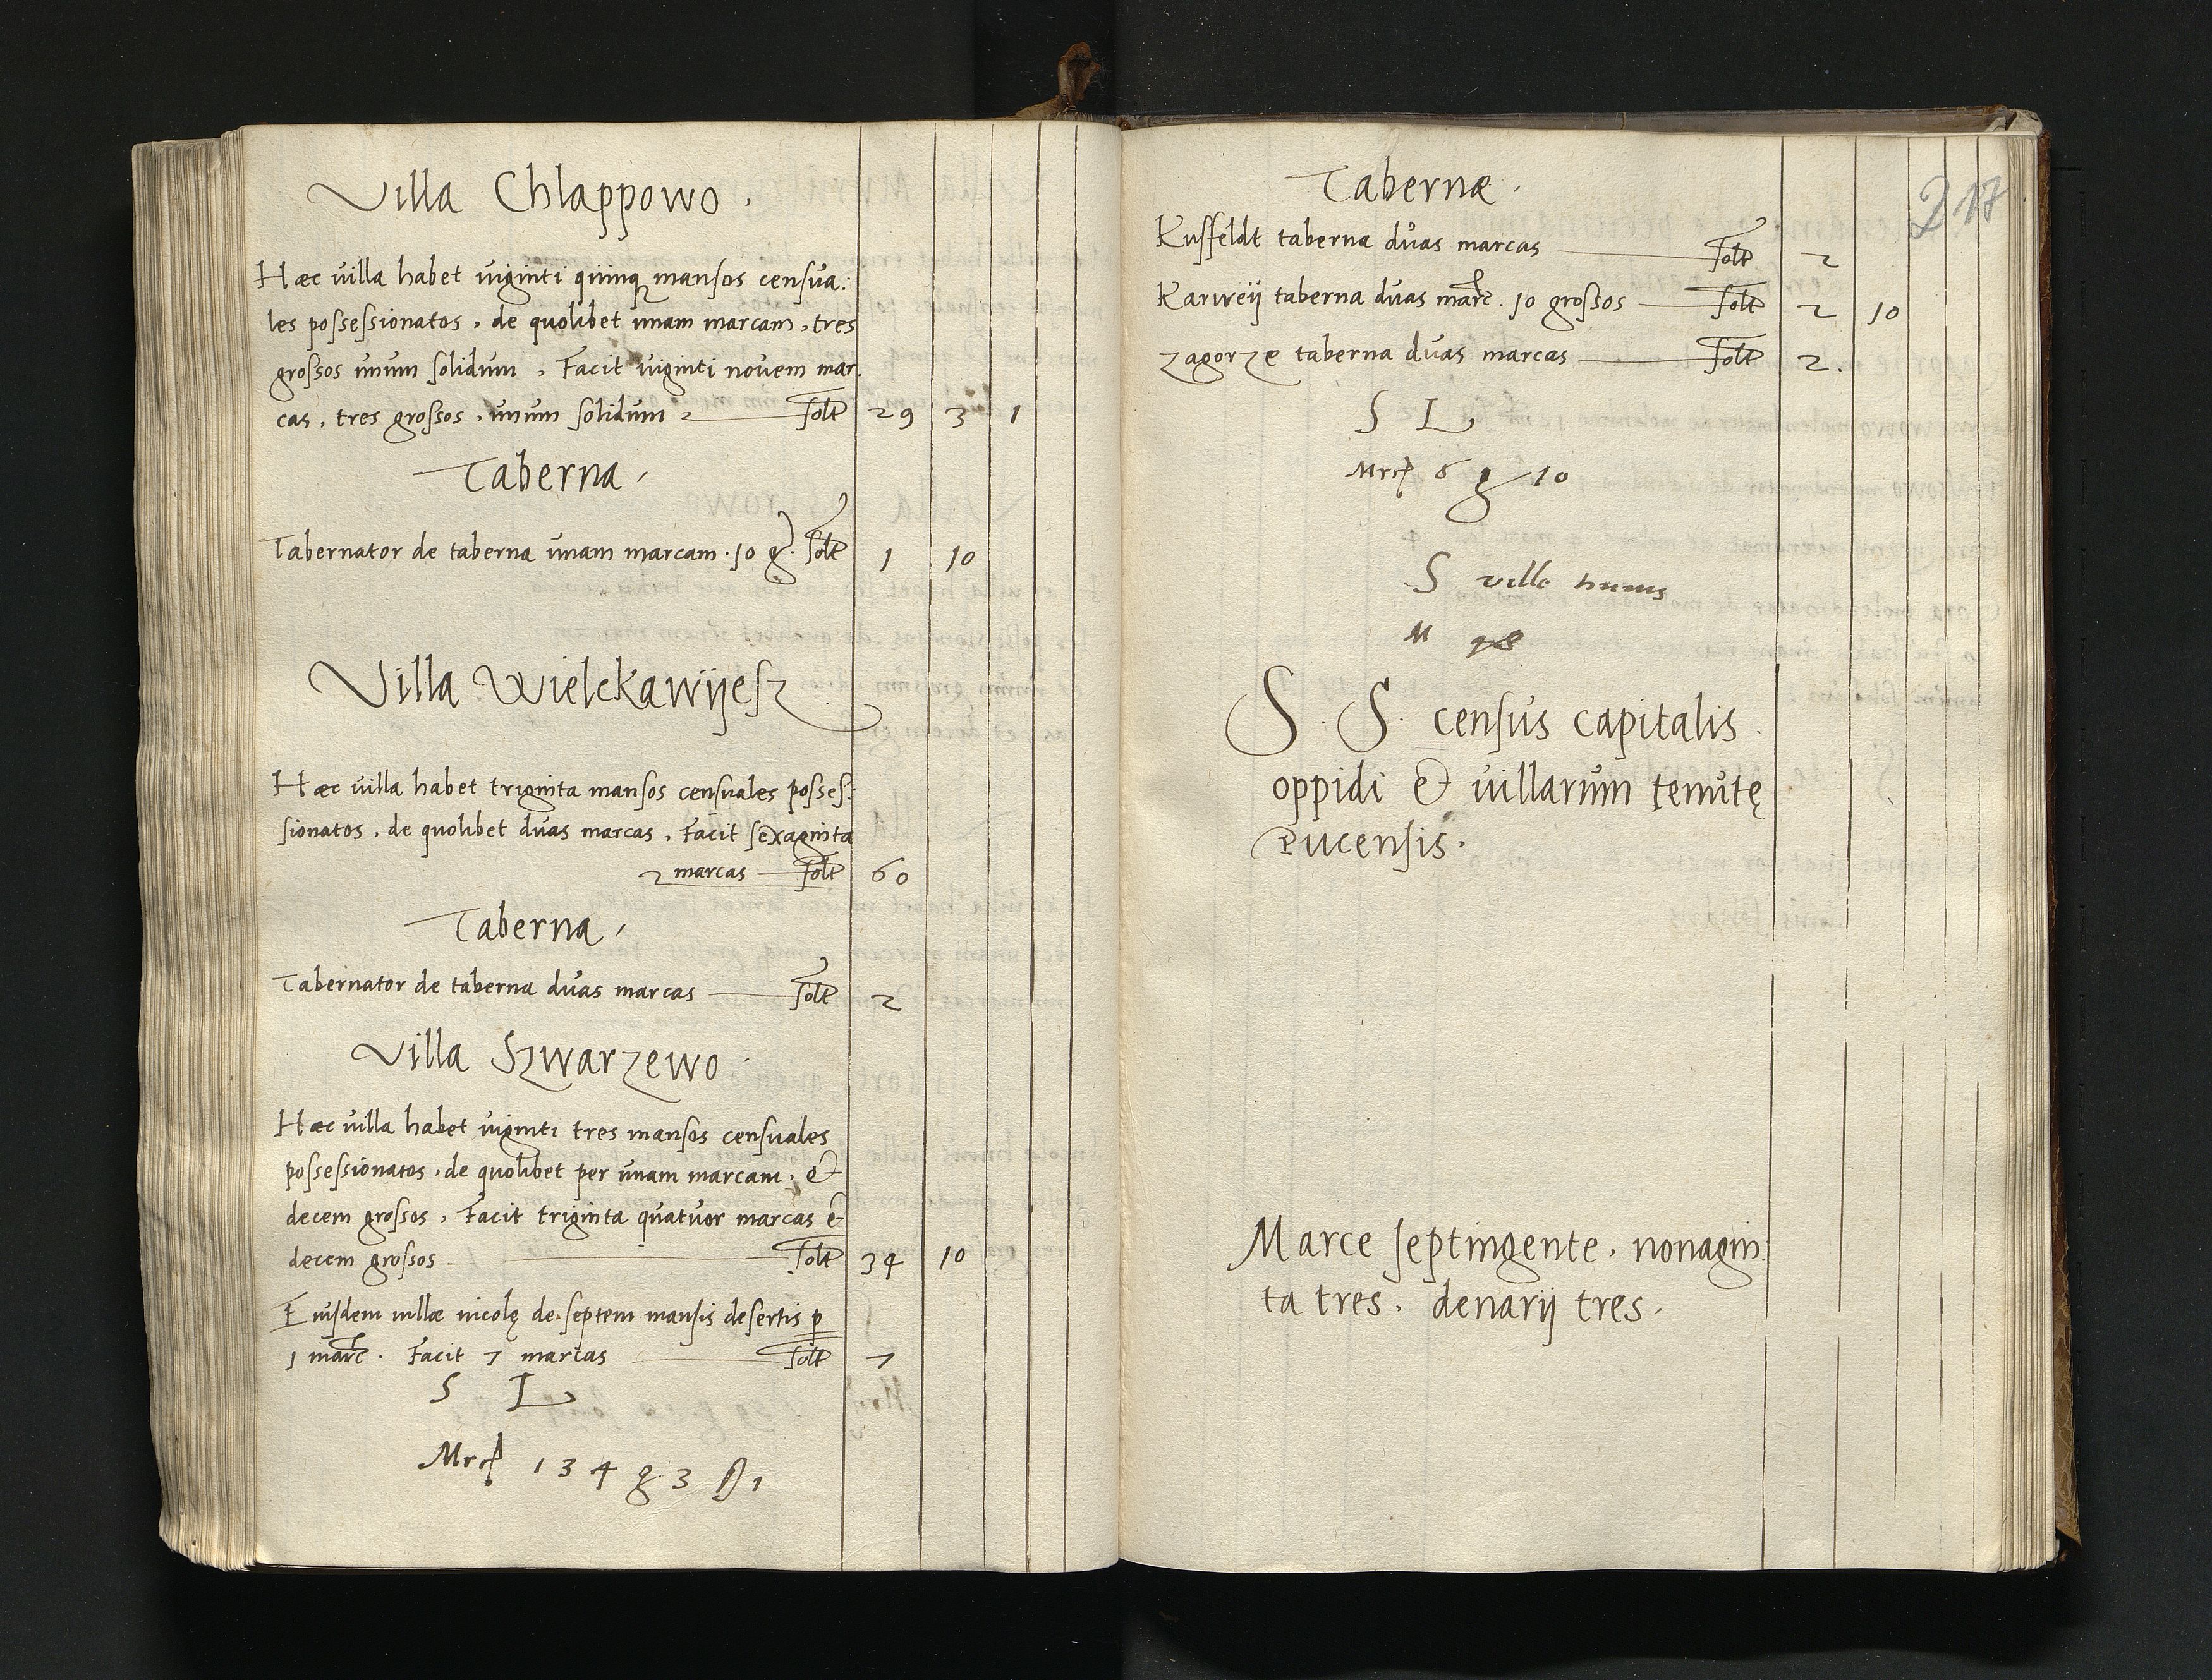 Villa Chlappowo.
Hæc uilla habet uiginti quinq3 mansos censua:
les possessionatos, de quolibet unam marcam, tres
grossos unum solidum, Facit uiginti nouem mar.
cas, tres grossos, unum solidum Solt 29 3 1
Taberna,
Tabernator de taberna unam marcam. 10 g. Solt 1 10
Villa Wielckawijesz
Hæc uilla habet triginta mansos censuales posses:
sionatos, de quolibet duas marcas, Facit sexaginta
marcas Solt 60
Taberna,
Tabernator de taberna duas marcas Solt 2
Villa Szwarzewo
Hæc uilla habet uiginti tres mansos censuales
possessionatos, de quolibet per unam marcam, &
decem grossos, Facit triginta quatuor marcas &
decem grossos Solt 34 10
Euisdem uillæ nicolę de septem mansis desertis p
1 marc. Facit 7 marcas Solt 7
S L
Mrc 134 g 3 ß 1
217
Tabernæ.
Kusfeldt taberna duas marcas Solt 2
Karweij taberna duas marc. 10 grossos Solt 2 10
Zagorze taberna duas marcas Solt 2.
S L
Mrc 6 g 10
S ville huius
M
S. S. census capitalis
oppidi & uillarum tenutę
Pucensis.
Marce septingente, nonagin:
ta tres. denarij tres.